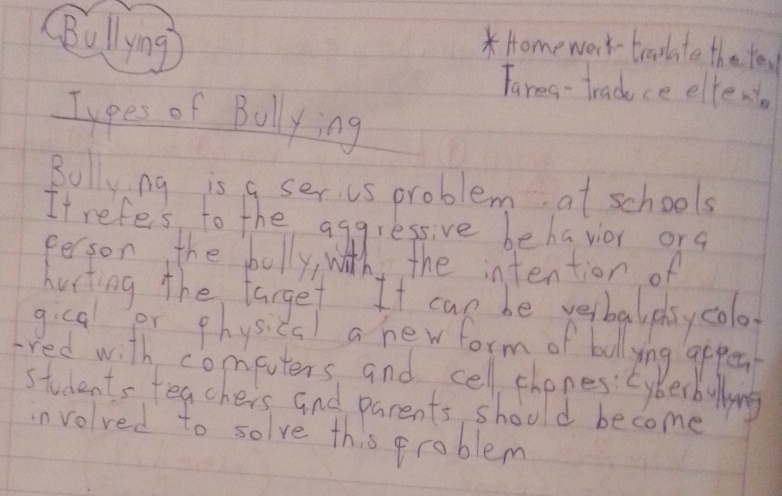 Bullying
* Homework-traslate the tex
Tarea-traduce el texto
Types of Bullying
Bullying is a serius problem at schools
It refers to the aggressive behavior or a
person the bully, with the intention of
hurting the target It can be verbal, phsycolo-
gical or physical a new form of bullying appea-
-red with computers and cell phones: cyberbullying
students teachers and parents should become
involved to solve this problem